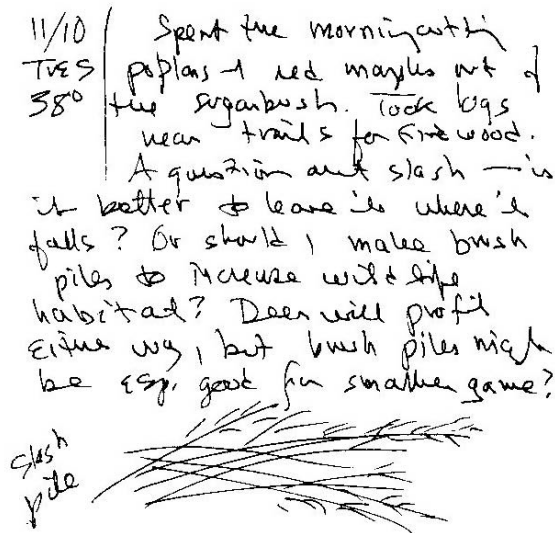 11/10
TUES
38°
Spent the morning cutting
poplars & red maples out of
the sugarbush. Took logs
near trails for firewood.
A question about slash — is
it better to leave it where it
falls? Or should I make brush
piles to increase wildlife
habitat? Deer will profit
either way, but brush piles might
be esp. good for smaller game?
slash
pile